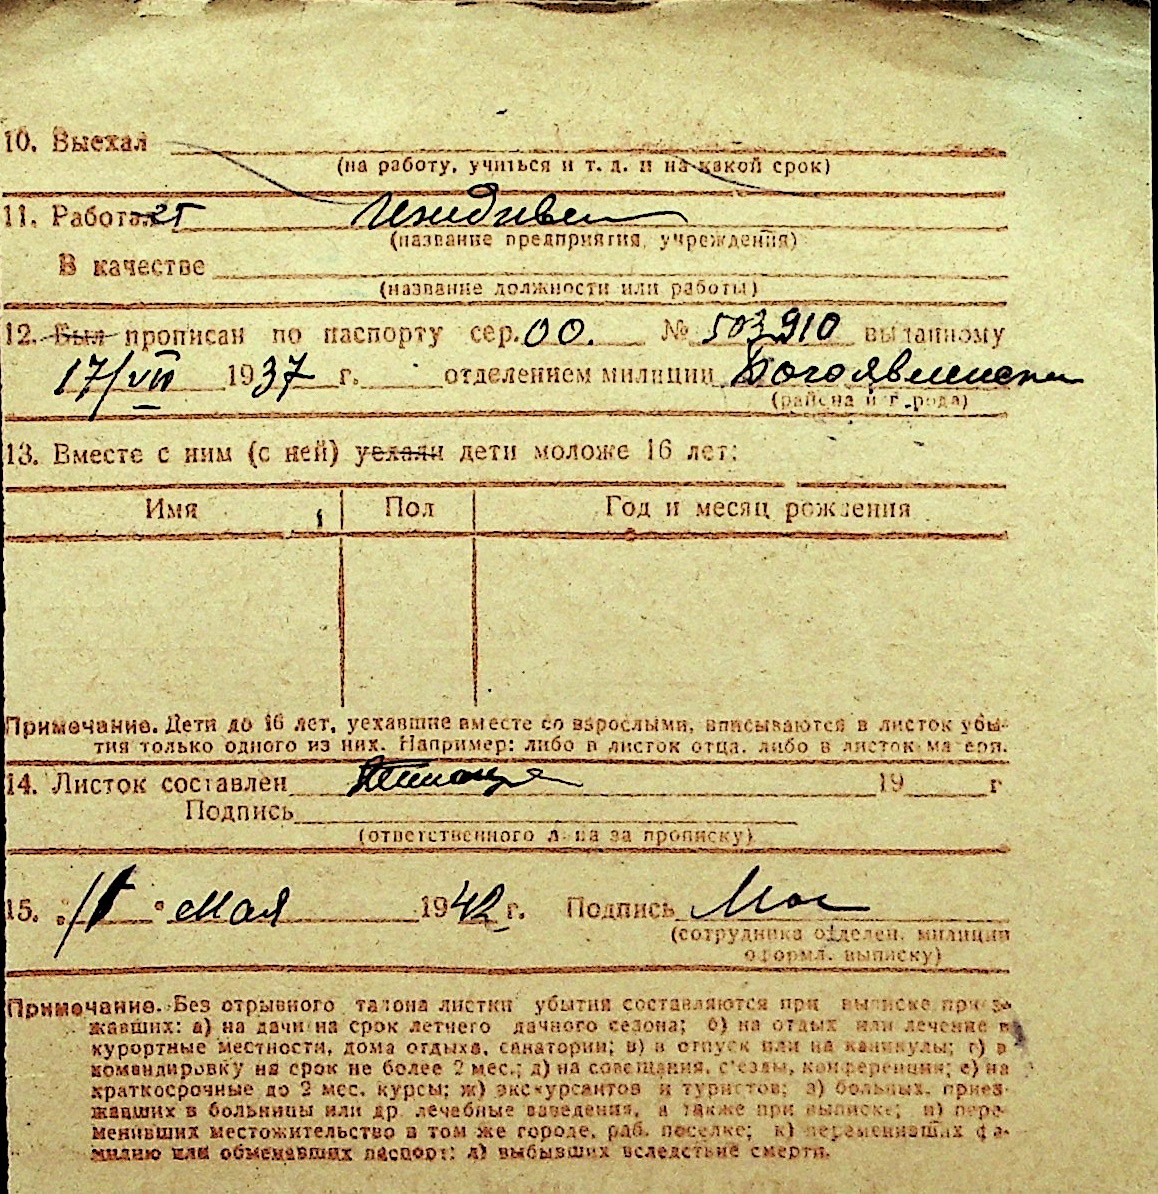 10. Выехал
(на работу, учиться и т. д. и на какой срок)
11. Работает Иждивен
(название предприятия, учреждения)
В качестве
(название должности или работы)
12. Был прописан по паспорту сер. 00. № 503910 выданному
17/VII 1937 г. отделением милиции
(района и города)
13. Вместе с ним (с ней) уехали дети моложе 16 лет:
Имя Пол Год и месяц рождения
Примечание. Дети до 16 лет, уехавшие вместе со взрослыми, вписываются в листок убы-
тия только одного из них. Например: либо в листок отца, либо в листок матери.
14. Листок составлен 19 г
Подпись
(ответственного лица за прописку)
15. „ " мая 1942 г. Подпись
(сотрудника отделен. милиции
оформл. выписку)
Примечание. Без отрывного талона листки убытия составляются при выписке приез-
жавших: а) на дачи на срок летнего дачного сезона; б) на отдых или лечение в
курортные местности, дома отдыха, санатории; в) в отпуск или на каникулы; г) в
командировку на срок не более 2 мес.; д) на совещания, с'езды, конференции; е) на
краткосрочные до 2 мес. курсы; ж) экскурсантов и туристов; з) больных, приез-
жавших в больницы или др. лечебные заведения, а также при выписке; и) пере-
менивших местожительство в том же городе, раб. поселке; к) переменивших фа-
милию или обменявших паспорт; л) выбывших вследствие смерти.